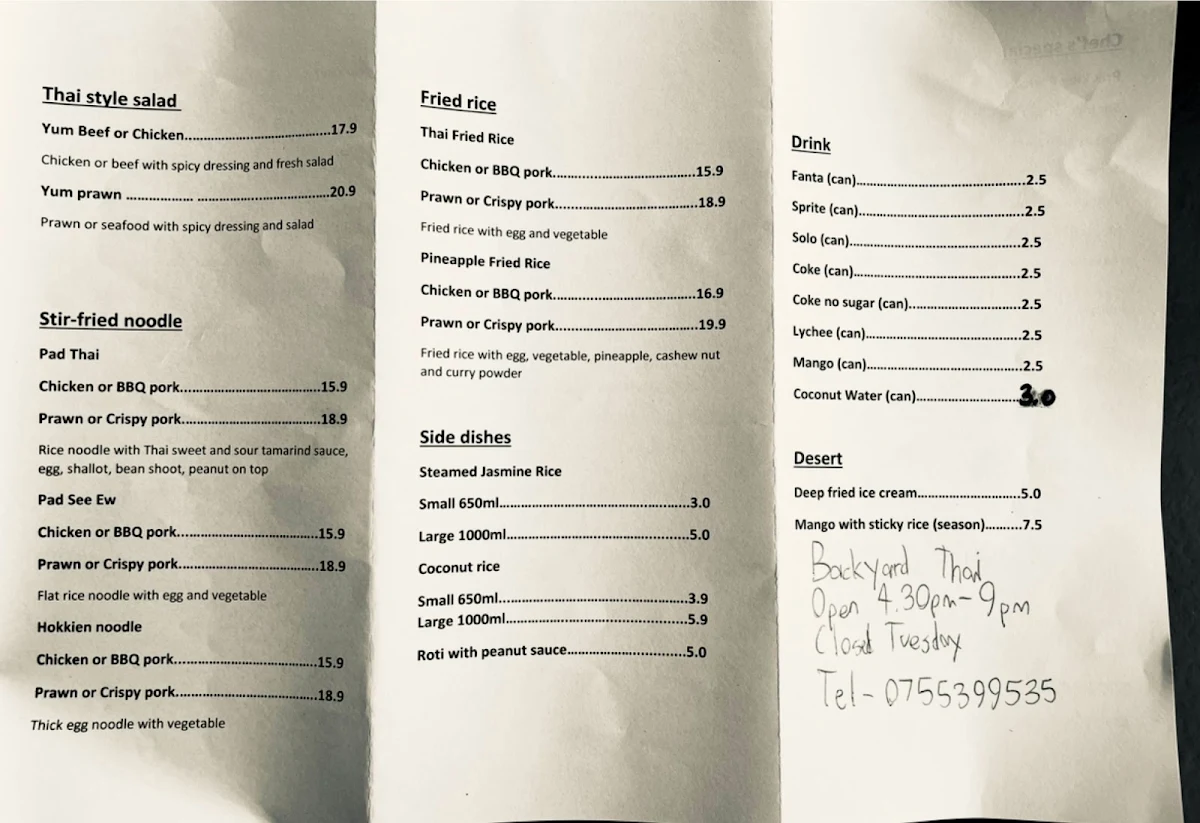 Thai style salad
Yum Beef or Chicken.......................................17.9
Chicken or beef with spicy dressing and fresh salad
Yum prawn .................... .......................................20.9
Prawn or seafood with spicy dressing and salad
Stir-fried noodle
Pad Thai
Chicken or BBQ pork.......................................15.9
Prawn or Crispy pork.......................................18.9
Rice noodle with Thai sweet and sour tamarind sauce,
egg, shallot, bean shoot, peanut on top
Pad See Ew
Chicken or BBQ pork.......................................15.9
Prawn or Crispy pork.......................................18.9
Flat rice noodle with egg and vegetable
Hokkien noodle
Chicken or BBQ pork.......................................15.9
Prawn or Crispy pork.......................................18.9
Thick egg noodle with vegetable
Fried rice
Thai Fried Rice
Chicken or BBQ pork.......................................15.9
Prawn or Crispy pork.......................................18.9
Fried rice with egg and vegetable
Pineapple Fried Rice
Chicken or BBQ pork.......................................16.9
Prawn or Crispy pork.......................................19.9
Fried rice with egg, vegetable, pineapple, cashew nut
and curry powder
Side dishes
Steamed Jasmine Rice
Small 650ml.......................................3.0
Large 1000ml.......................................5.0
Coconut rice
Small 650ml.......................................3.9
Large 1000ml.......................................5.9
Roti with peanut sauce...............................5.0
Chef's special
Drink
Fanta (can).............................................2.5
Sprite (can).............................................2.5
Solo (can).............................................2.5
Coke (can).............................................2.5
Coke no sugar (can)...................................2.5
Lychee (can).............................................2.5
Mango (can).............................................2.5
Coconut Water (can)............................3.0
Desert
Deep fried ice cream............................5.0
Mango with sticky rice (season)..........7.5
Backyard Thai
Open 4.30pm-9pm
Closed Tuesday
Tel- 0755399535